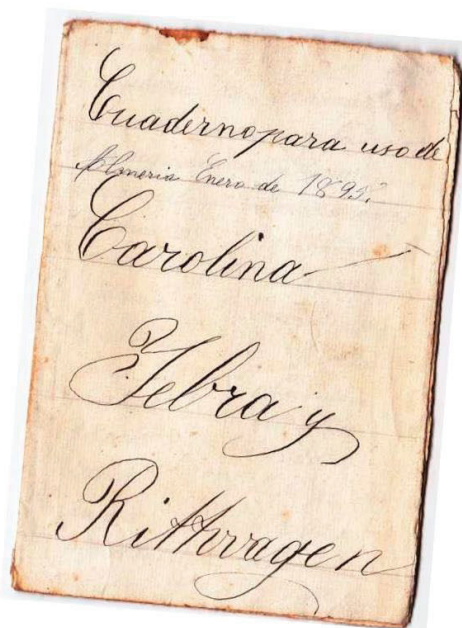 Cuaderno para uso de
Almeria Enero de 1895.
Carolina
Yebra y
Rittwagen